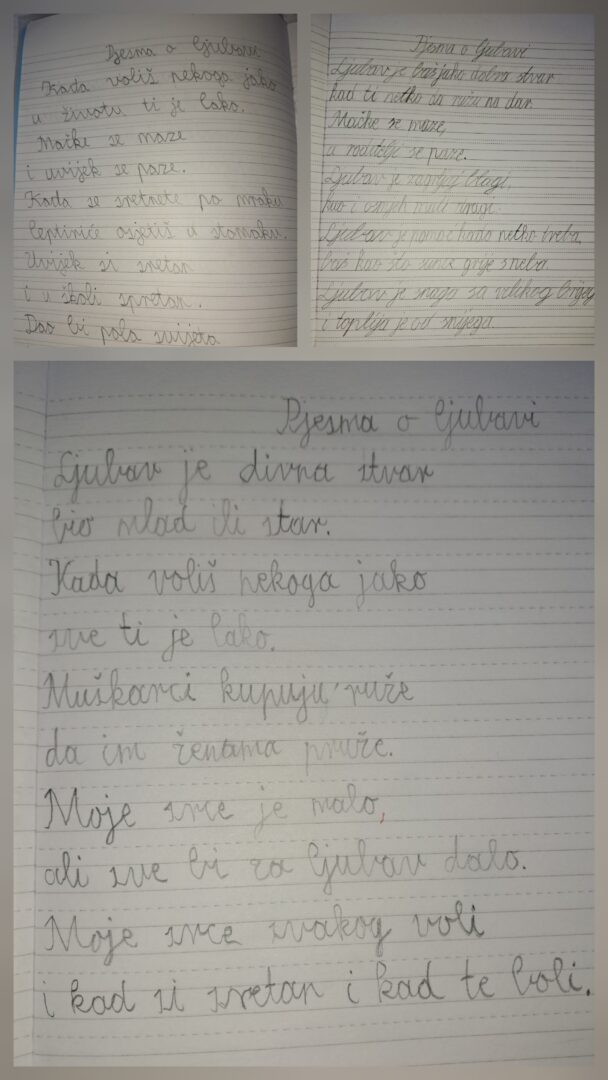 Pjesma o ljubavi
Kada voliš nekoga jako
u životu ti je lako.
Mačke se maze
i uvijek se paze.
Kada se sretnete po mraku
leptiriće osjetiš u stomaku.
Uvijek si sretan
i u školi spretan.
Dao bi pola svijeta
Pjesma o ljubavi
Ljubav je baš jako dobra stvar
kad ti netko da ružu na dar.
Mačke se maze,
a roditelji se paze.
Ljubav je zagrljaj blagi,
kao i osmjeh mali dragi.
Ljubav je pomoć kada netko treba,
baš kao što sunce grije s neba.
Ljubav je snaga sa velikog brijega
i toplija je od snijega.
Pjesma o ljubavi
Ljubav je divna stvar
bio mlad ili star.
Kada voliš nekoga jako
sve ti je lako.
Muškarci kupuju ruže
da im ženama pruže.
Moje srce je malo,
ali sve bi za ljubav dalo.
Moje srce svakog voli
i kad si sretan i kad te boli.